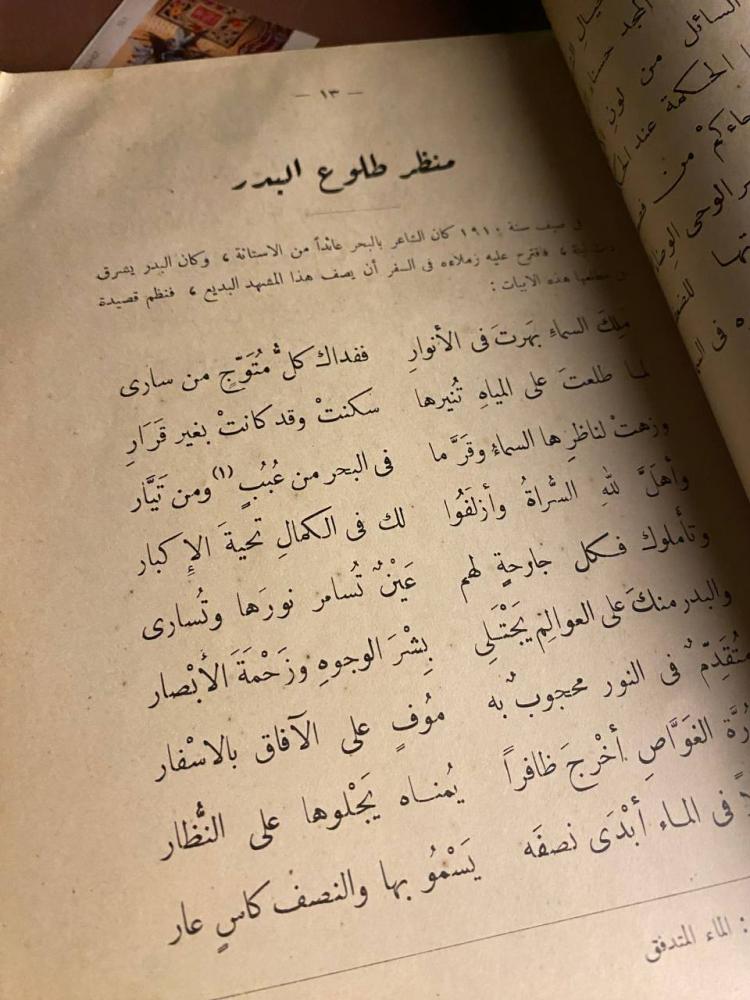 — ١٣ —
منظر طلوع البدر
فى صيف سنة ١٩١٠ كان الشاعر بالبحر عائداً من الاستانة ، وكان البدر يشرق
، فاقترح عليه زملاءه فى السفر أن يصف هذا المشهد البديع ، فنظم قصيدة
هذه الابيات :
مَلِكَ السماءِ بَهَرتَ فى الأنوارِ ففداك كلُّ مُتَوَّجٍ من سارى
لما طلعتَ على المياهِ تُنيرها سكنتْ وقد كانتْ بغير قَرَارِ
وزهتْ لناظرِها السماءُ وقَرَّ ما فى البحر من عُبُبٍ (١) ومن تَيَّار
وأهَلَّ للهِ السُّراةُ وأزلَفُوا لك فى الكمالِ تحيةَ الإكبار
وتأملوك فكل جارحةٍ لهم عَيْنٌ تُسامر نورَها وتُسارى
والبدر منكَ على العوالِمِ يَجْتَلِي بِشْرَ الوجوهِ وزَحْمَةَ الأَبْصار
مُتَقَدِّمٌ فى النور محجوبٌ به مُوْفٍ على الآفاق بالاسْفار
دُرَّة الغَوَّاصِ أخْرجَ ظافراً يُمنـاه يَجْلوها على النُّظار
فى المـاء أبْدَى نصفَه يَسْمُو بها والنصف كاسٍ عار
: الماء المتدفق
السائل من لون
المجد
الحكمة عند
من
الوحى
فى